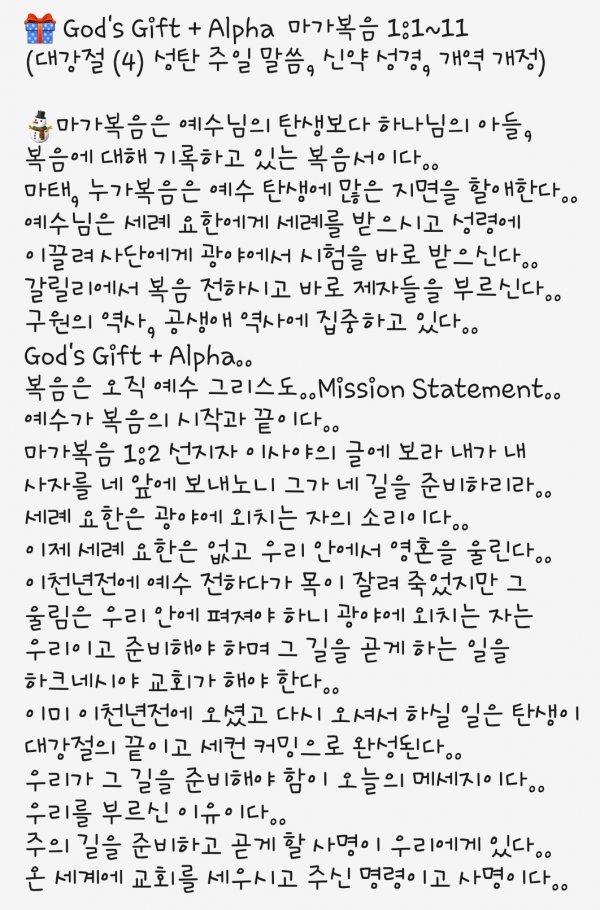 🎁 God's Gift + Alpha 마가복음 1:1~11
(대강절 (4) 성탄 주일 말씀, 신약 성경, 개역 개정)
⛄마가복음은 예수님의 탄생보다 하나님의 아들,
복음에 대해 기록하고 있는 복음서이다..
마태, 누가복음은 예수 탄생에 많은 지면을 할애한다..
예수님은 세례 요한에게 세례를 받으시고 성령에
이끌려 사단에게 광야에서 시험을 바로 받으신다..
갈릴리에서 복음 전하시고 바로 제자들을 부르신다..
구원의 역사, 공생애 역사에 집중하고 있다..
God's Gift + Alpha..
복음은 오직 예수 그리스도..Mission Statement..
예수가 복음의 시작과 끝이다..
마가복음 1:2 선지자 이사야의 글에 보라 내가 내
사자를 네 앞에 보내노니 그가 네 길을 준비하리라..
세례 요한은 광야에 외치는 자의 소리이다..
이제 세례 요한은 없고 우리 안에서 영혼을 울린다..
이천년전에 예수 전하다가 목이 잘려 죽었지만 그
울림은 우리 안에 펴져야 하니 광야에 외치는 자는
우리이고 준비해야 하며 그 길을 곧게 하는 일을
하크네시야 교회가 해야 한다..
이미 이천년전에 오셨고 다시 오셔서 하실 일은 탄생이
대강절의 끝이고 세컨 커밍으로 완성된다..
우리가 그 길을 준비해야 함이 오늘의 메세지이다..
우리를 부르신 이유이다..
주의 길을 준비하고 곧게 할 사명이 우리에게 있다..
온 세계에 교회를 세우시고 주신 명령이고 사명이다..